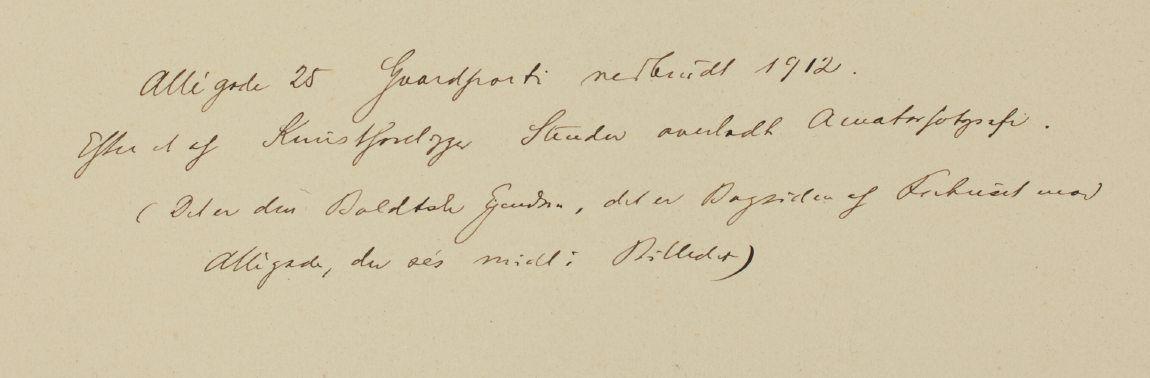 Allégade 25 Gaardparti nedbrudt 1912.
Efter et af Kunstforlægger Stender overladt Amatørfotografi.
(Det er den Boldtske Ejendom, det er Bagsiden af Forhuset mod
Allégade, der sés midt i Billedet)